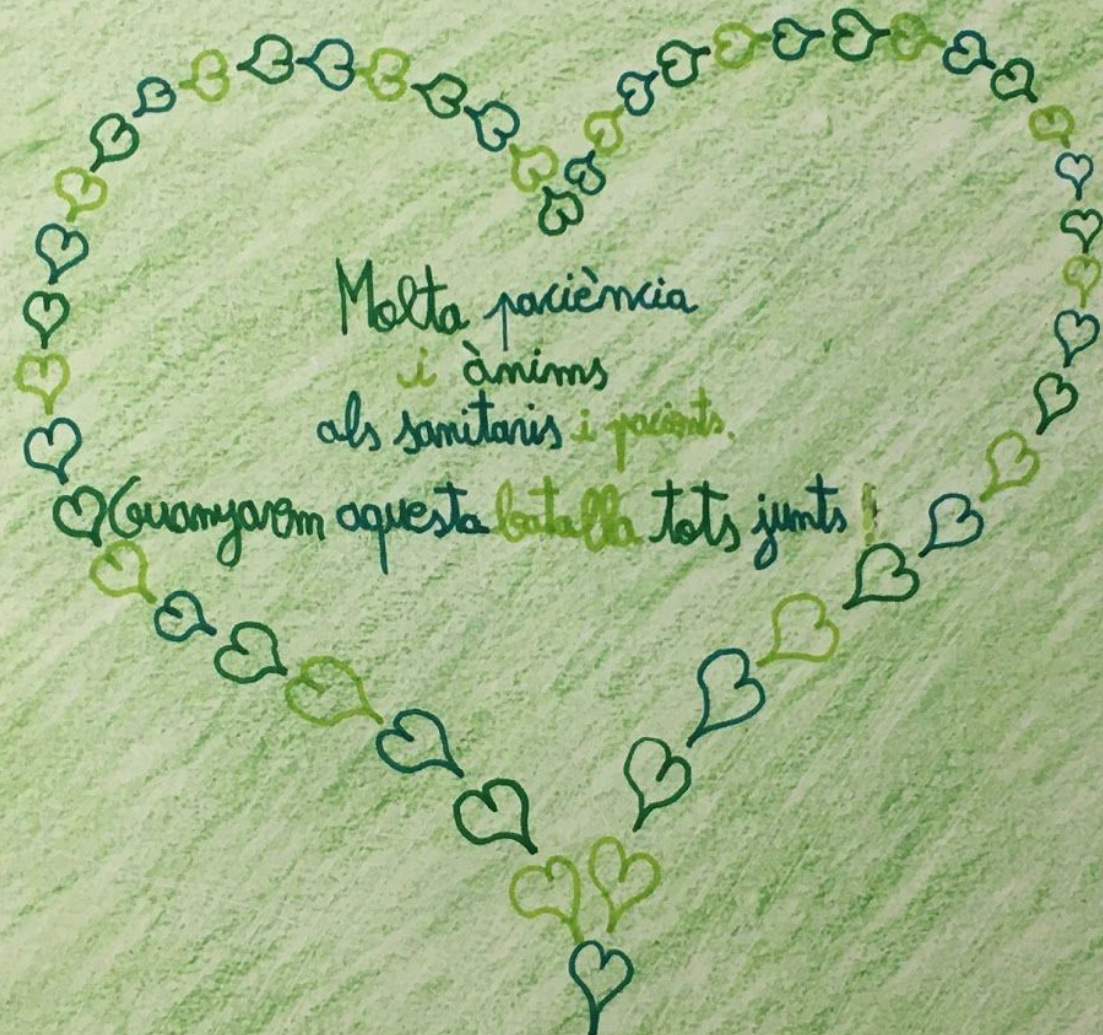 Molta paciència
i ànims
als sanitaris i pacients.
Guanyarem aquesta batalla tots junts !